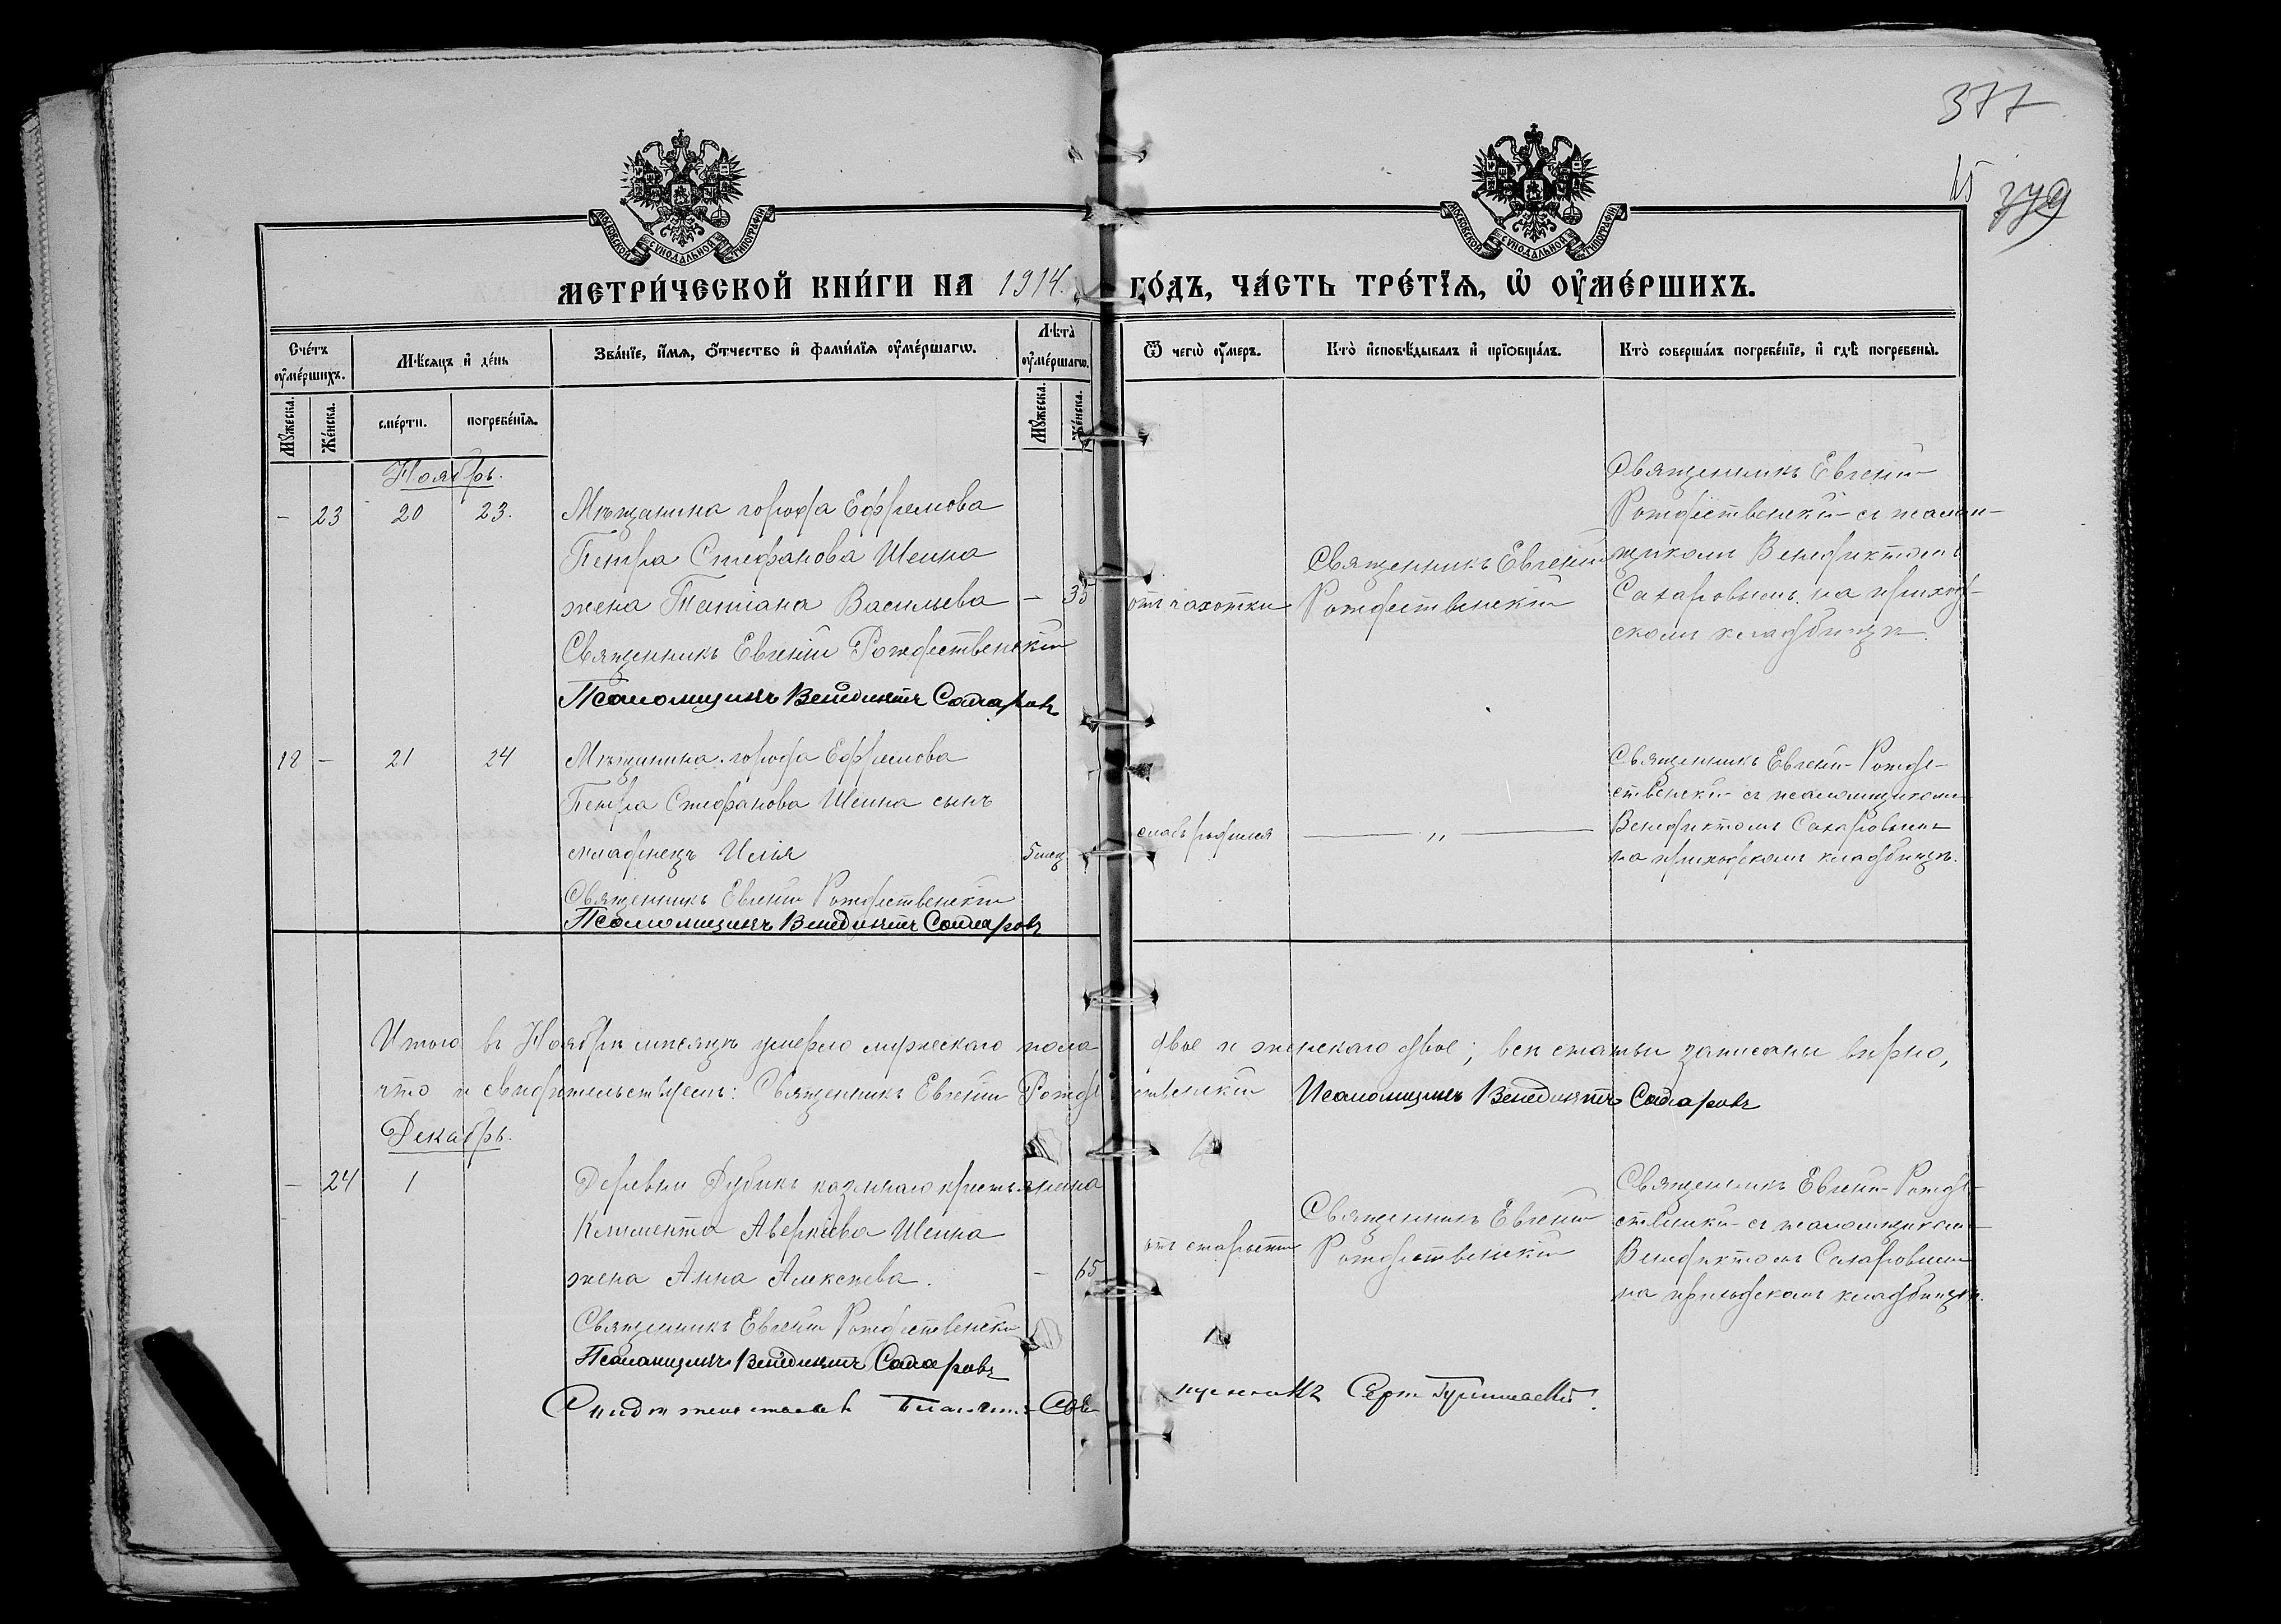 377
65
379
МОСКОВСКОЙ СѴНОДАЛЬНОЙ ТИПОГРАФІИ
МОСКОВСКОЙ СѴНОДАЛЬНОЙ ТИПОГРАФІИ
МЕТРИ́ЧЕСКОЙ КНИ́ГИ НА 1914. ГО́ДЪ, ЧА́СТЬ ТРЕ́ТІѦ, Ѡ҆ ОУ҆МЕ́РШИХЪ.
Сче́тъ оу҆ме́ршихъ.
Мѣ́сяцъ и҆ де́нь
Зва́нїе, и҆́мя, ѻ҆́тчество и҆ фами́лїя оу҆ме́ршагѡ.
Лѣ́та оу҆ме́ршагѡ.
Ѿ чегѡ̀ оу҆́меръ.
Кто̀ и҆сповѣ́дывалъ и҆ прїѡбща́лъ.
Кто̀ соверша́лъ погребе́нїе, и҆ гдѣ̀ погребены̀.
Мꙋ́жеска.
Же́нска.
сме́рти.
погребе́нїя.
Мꙋ́жеска.
Же́нска.
Ноябрь.
- 23 20 23.
Мѣщанина города Ефремова
Петра Стефанова Шеина
жена Татіана Васильева - 35
Священникъ Евгеній Рождественскій
Псаломщикъ Венедиктъ Сахаровъ
отъ чахотки
Священникъ Евгеній
Рождественскій
Священникъ Евгеній
Рождественскій съ псалом-
щикомъ Венедиктомъ
Сахаровымъ на приход-
скомъ кладбищѣ.
18 - 21 24
Мѣщанина города Ефремова
Петра Стефанова Шеина сынъ
младенецъ Илія 5 мѣс. -
Священникъ Евгеній Рождественскій
Псаломщикъ Венедиктъ Сахаровъ
слабъ родился
— „ —
Священникъ Евгеній Рожде-
ственскій съ псаломщикомъ
Венедиктомъ Сахаровымъ
на приходскомъ кладбищѣ.
Итого въ Ноябрѣ мѣсяцѣ умерло мужескаго пола двое и женскаго двое; всѣ статьи записаны вѣрно,
что и свидѣтельствуемъ: Священникъ Евгеній Рождественскій Псаломщикъ Венедиктъ Сахаровъ
Декабрь.
- 24 1
Деревни Дубикъ казеннаго крестьянина
Климента Аверкіева Шеина
жена Анна Алексѣева. - 65
Священникъ Евгеній Рождественскій
Псаломщикъ Венедиктъ Сахаровъ
отъ старости
Священникъ Евгеній
Рождественскій
Священникъ Евгеній Рожде-
ственскій съ псаломщикомъ
Венедиктомъ Сахаровымъ
на приходскомъ кладбищѣ.